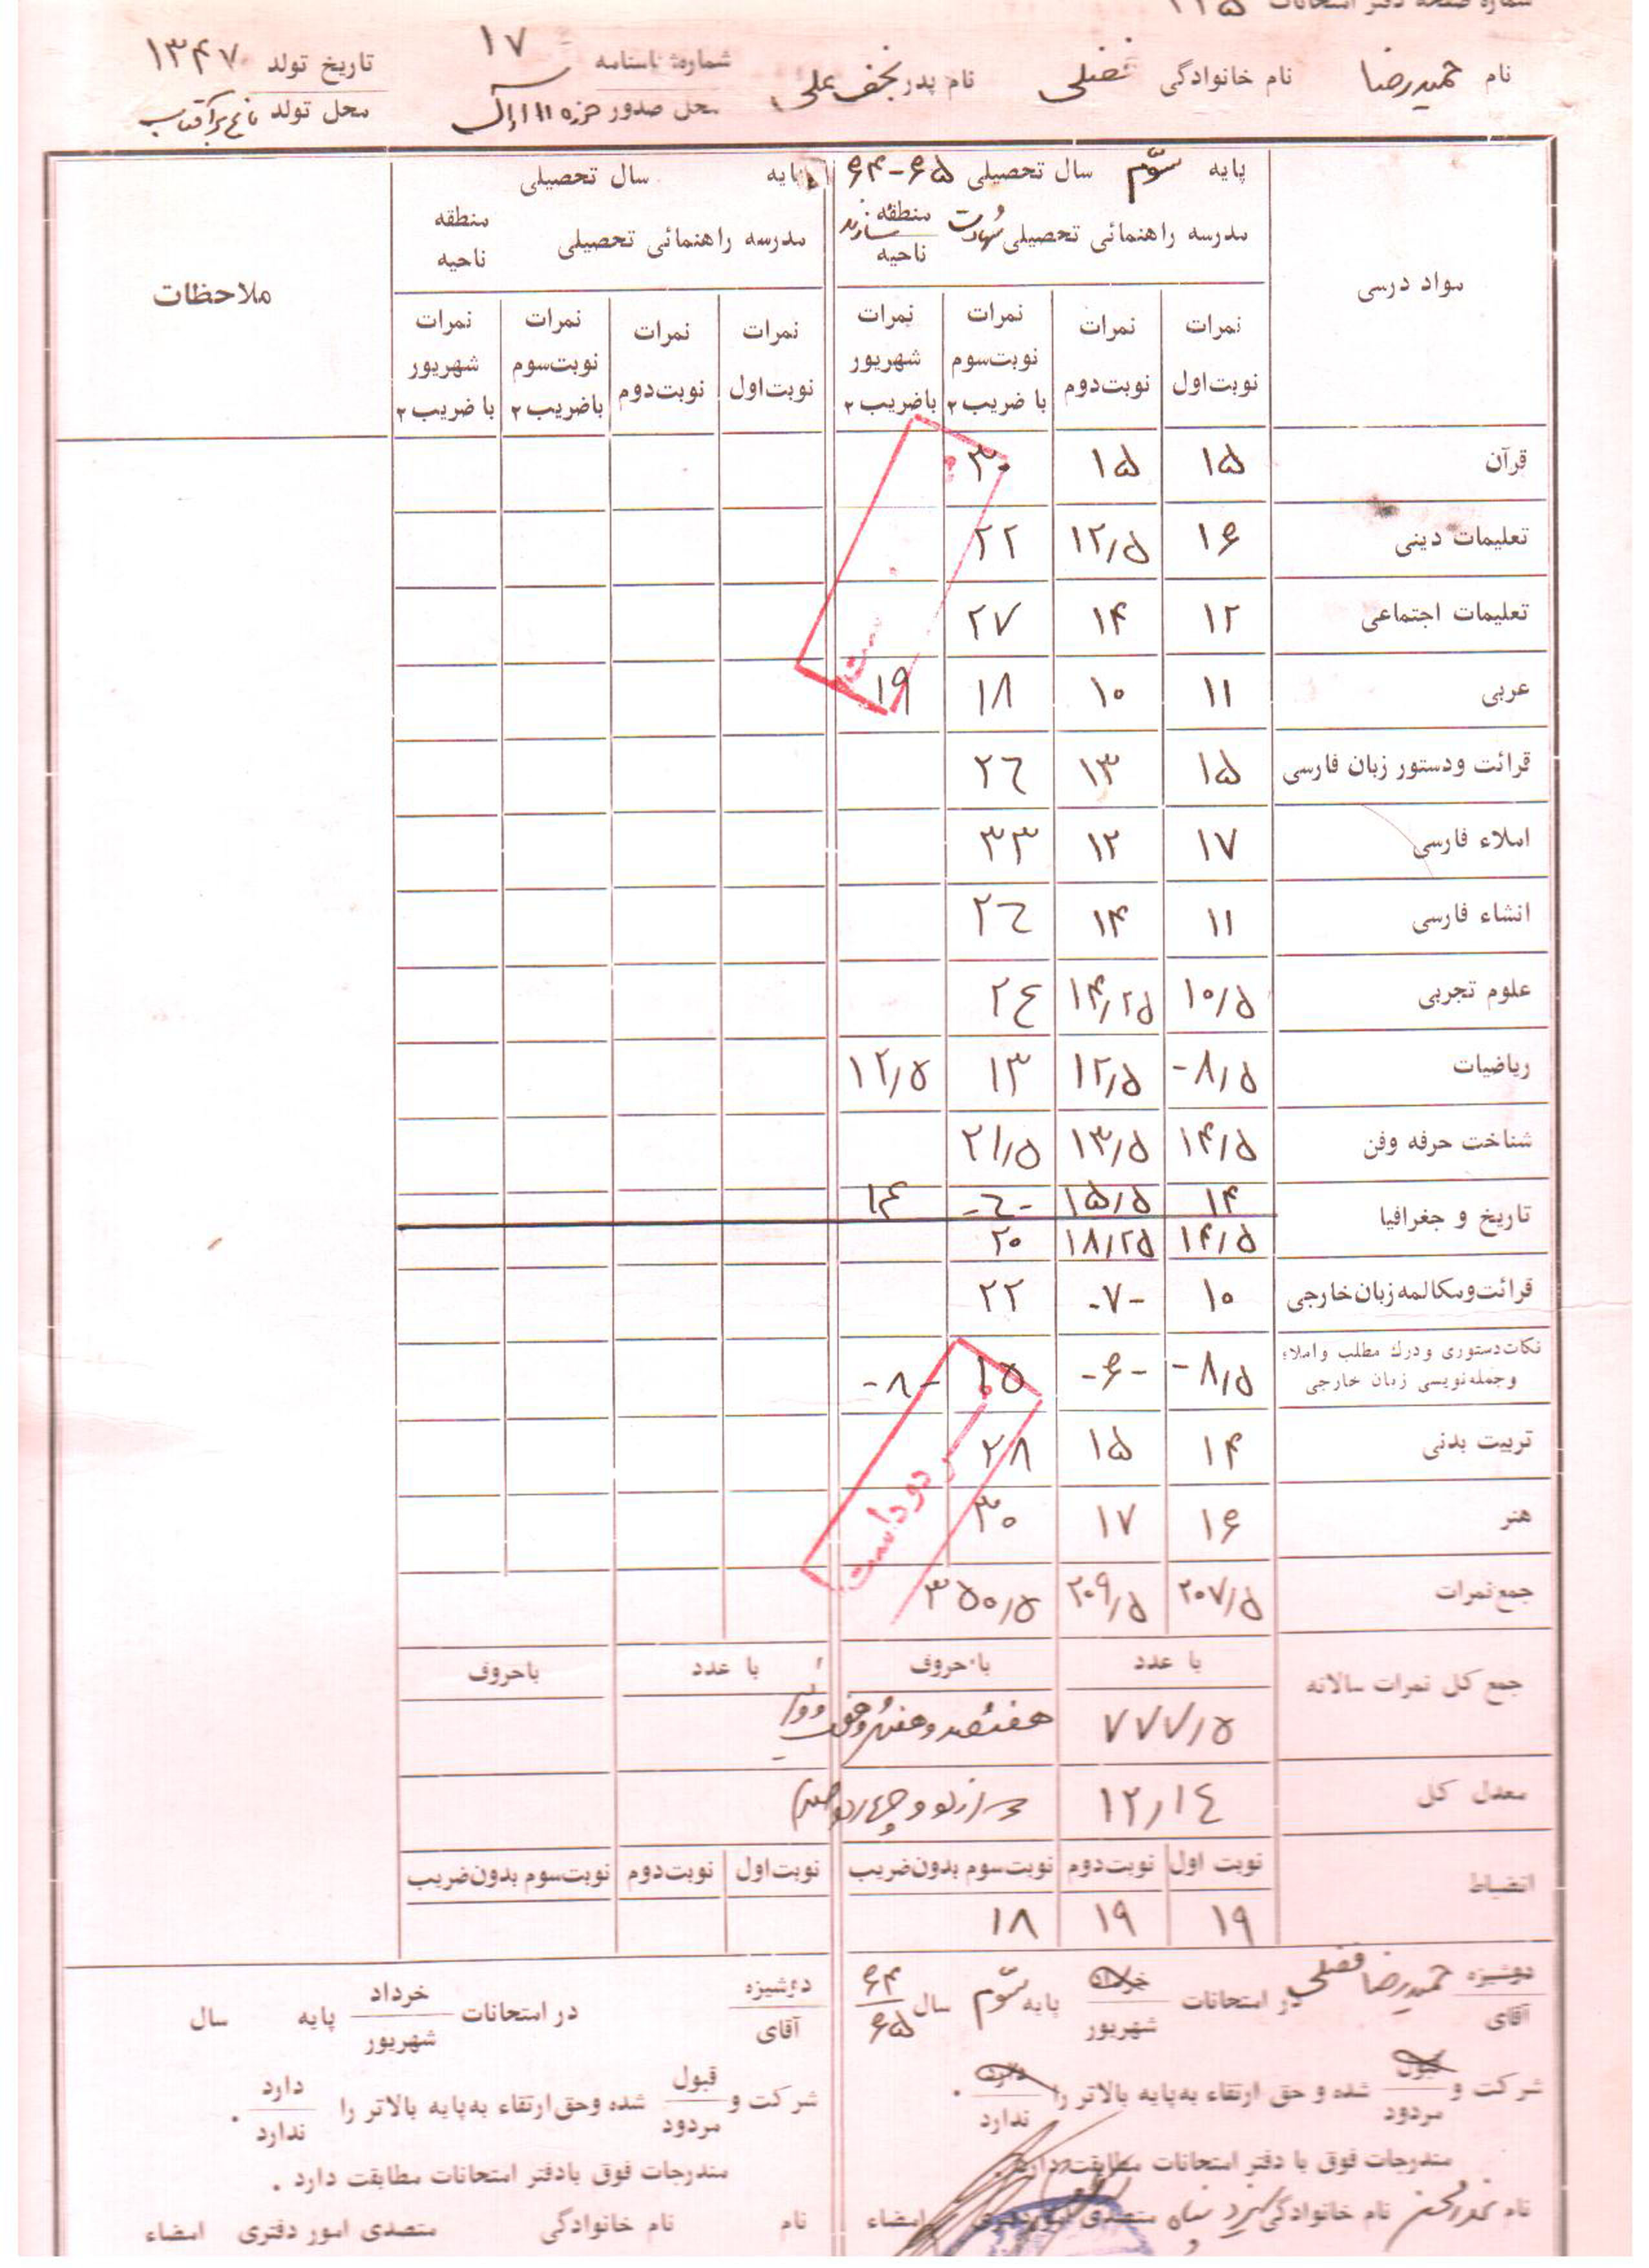 شماره صفحه دفتر امتحانات ۱۱۵
نام حمیدرضا نام خانوادگی فضلی نام پدر نجفعلی شماره شناسنامه ۱۷ تاریخ تولد ۱۳۴۷
محل صدور حوزه ۱۱ اراک محل تولد
مواد درسی پایه سوّم سال تحصیلی ۶۵-۶۴ پایه سال تحصیلی ملاحظات
مدرسه راهنمائی تحصیلی منطقه شازند ناحیه مدرسه راهنمائی تحصیلی منطقه ناحیه
نمرات نوبت‌اول نمرات نوبت‌دوم نمرات نوبت‌سوم با ضریب ۲ نمرات شهریور باضریب ۲ نمرات نوبت‌اول نمرات نوبت‌دوم نمرات نوبت‌سوم باضریب ۲ نمرات شهریور با ضریب ۲
قرآن ۱۵ ۱۵ ۳۰
تعلیمات دینی ۱۶ ۱۲/۵ ۲۲
تعلیمات اجتماعی ۱۲ ۱۴ ۲۷
عربی ۱۱ ۱۰ ۱۸ ۱۹
قرائت ودستور زبان فارسی ۱۵ ۱۳ ۲٦
املاء فارسی ۱۷ ۱۲ ۳۳
انشاء فارسی ۱۱ ۱۴ ۲٦
علوم تجربی ۱۰/۵ ۱۴/۲۵ ۲٤
ریاضیات ۸/۵- ۱۲/۵ ۱۳ ۱۲/۵
شناخت حرفه وفن ۱۴/۵ ۱۳/۵ ۲۱/۵
تاریخ و جغرافیا ۱۴ ۱۵/۵ -٦- ۱۴
۱۴/۵ ۱۸/۲۵ ۲۰
قرائت‌ومکالمه زبان‌خارجی ۱۰ -۷- ۲۲
نکات‌دستوری و درك مطلب و املاء
و جمله‌نویسی زبان خارجی ۸/۵- -۶- ۱۵ -۸-
تربیت بدنی ۱۴ ۱۵ ۲۸
هنر ۱۶ ۱۷ ۳۰
مردود است
جمع‌نمرات ۲۰۷/۵ ۲۰۹/۵ ۳۵۰/۵
جمع کل نمرات سالانه با عدد با حروف با عدد باحروف
۷۷۷/۵ هفتصد و هفتاد و هفت
معدل کل ۱۲/۱٤ دوازده و چهارده صدم
انضباط نوبت اول نوبت‌دوم نوبت‌سوم بدون‌ضریب نوبت‌اول نوبت‌دوم نوبت‌سوم بدون‌ضریب
۱۹ ۱۹ ۱۸
دوشیزه آقای حمیدرضا فضلی در امتحانات خرداد شهریور پایه سوّم سال ۶۴ ۶۵
شرکت و قبول مردود شده و حق ارتقاء به‌پایه بالاتر را دارد ندارد .
مندرجات فوق با دفتر امتحانات مطابقت دارد.
نام نام خانوادگی متصدی امور دفتری امضاء
دوشیزه آقای در امتحانات خرداد شهریور پایه سال
شرکت و قبول مردود شده وحق‌ارتقاء به‌پایه بالاتر را دارد ندارد .
مندرجات فوق بادفتر امتحانات مطابقت دارد .
نام نام خانوادگی متصدی امور دفتری امضاء